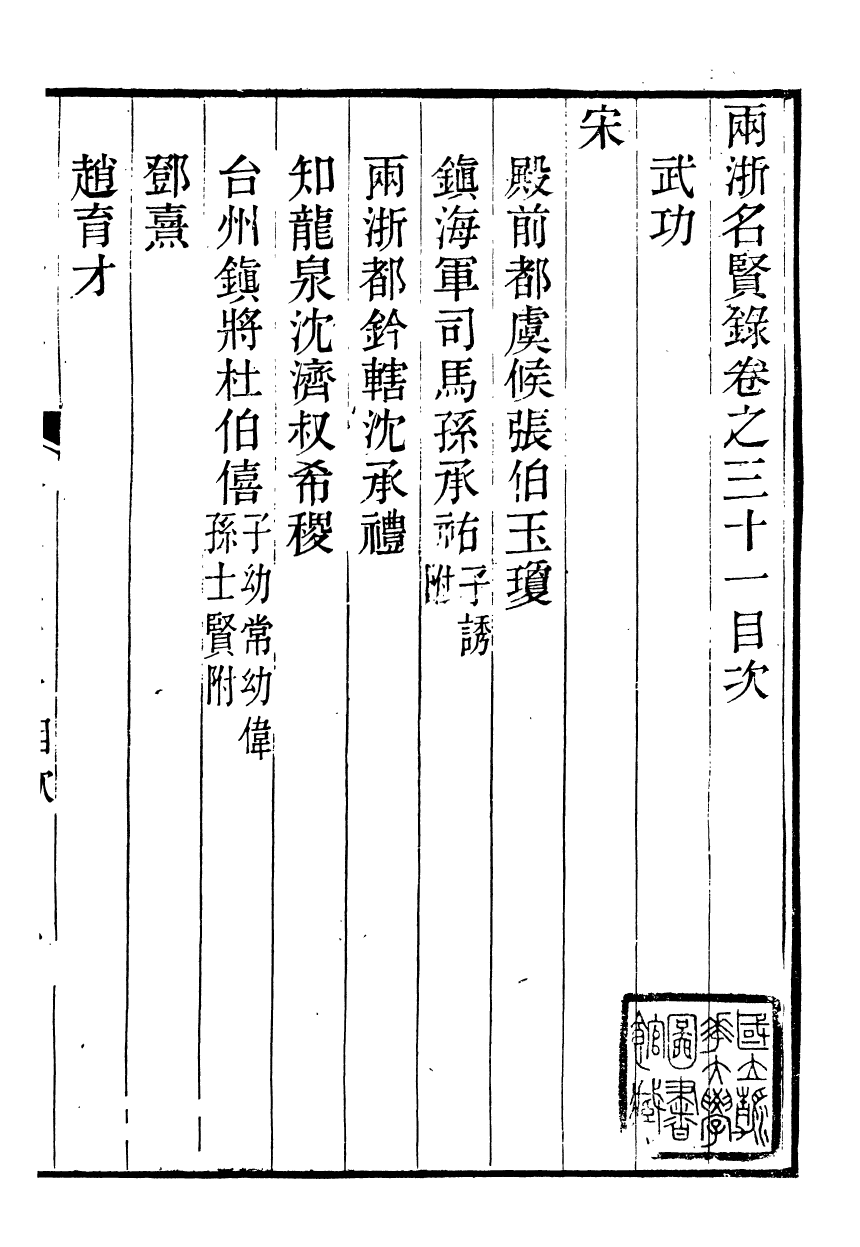 兩浙名賢錄卷之三十一目次
武功
宋
殿前都虞候張伯玉瓊
鎭海軍司馬孫承祐子誘附
兩浙都鈐轄沈承禮
知龍泉沈濟叔希稷
台州鎭將杜伯僖子幼常幼偉孫士賢附
鄧熹
趙育才
目次
國立
大學
圖書
館藏